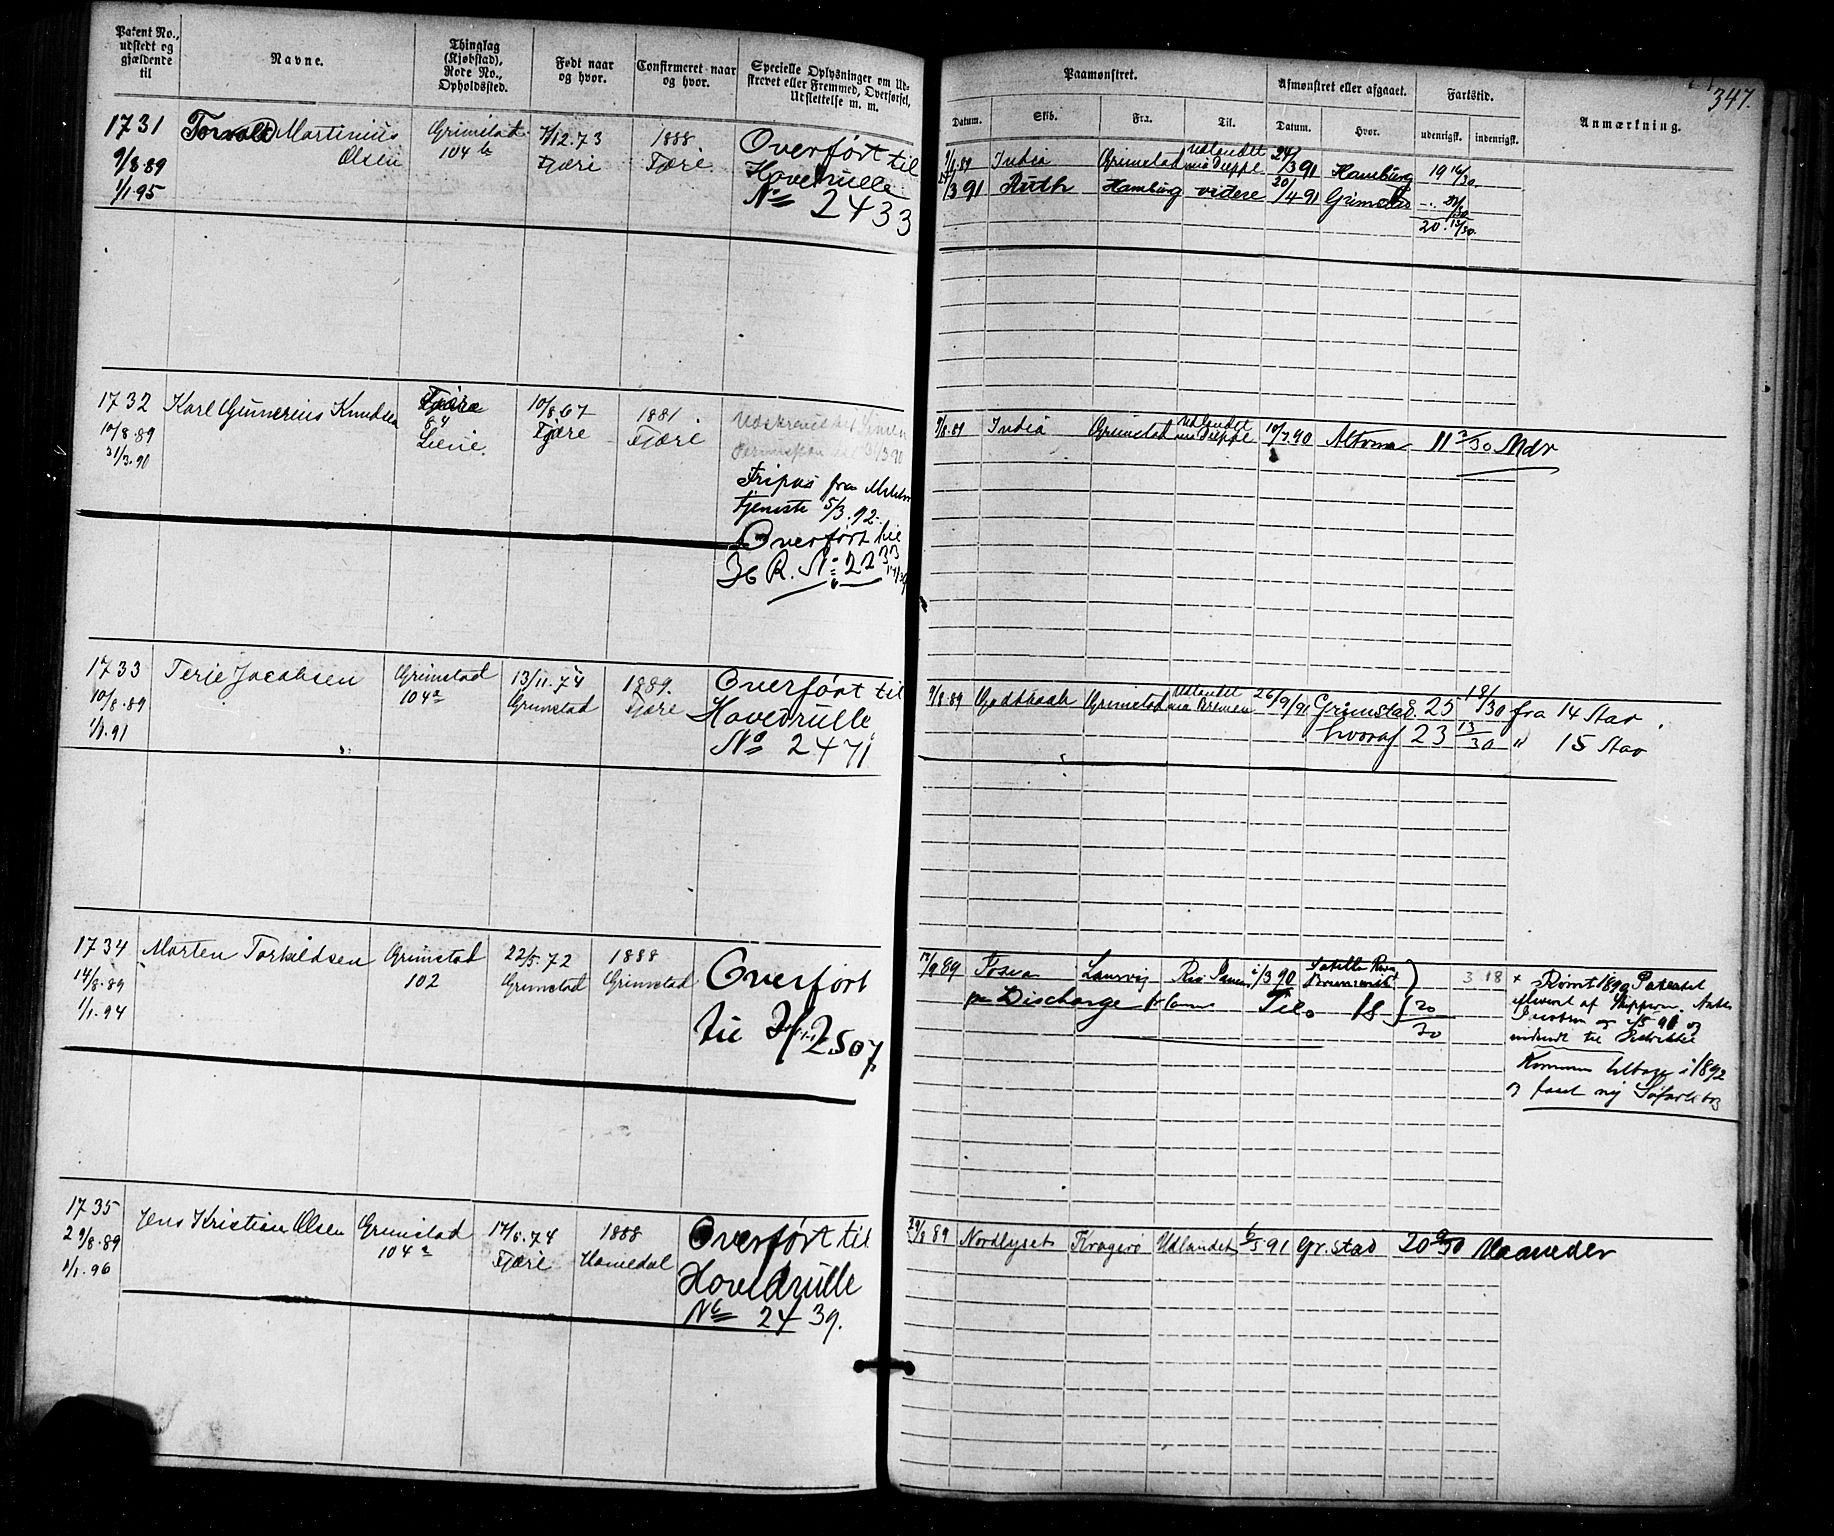 347.
Patent No., udstedt og gjældende til
Navne.
Thinglag (Kjøbstad), Rode No., Opholdssted.
Født naar og hvor.
Confirmeret naar og hvor.
Specielle Oplysninger om Udskrevet eller Fremmed, Overførsel, Udslettelse m. m.
Paamønstret.
Afmønstret eller afgaaet.
Fartstid.
Anmærkning.
Datum.
Skib.
Fra.
Til.
Datum.
Hvor.
udenrigsk.
indenrigsk.
1731
9/8.89
1/1.95
Torvald Martinius
Olsen
Grimstad
104 b
7/12.73
Fjære
1888
Fjære
Overført til
Hovedrulle
No 2433
9/8.89 India Grimstad Udlandet via Dieppe 24/3 91 Hamburg 19 16/30
/3 91 Ruth Hamburg videre 30/4 91 Grimstad
20.
1732
10/8.89
31/3.90
Karl Gunnerius Knudsen
Fjære
84
10/8.67
Fjære
1881
Fjære
Fripas fra
tjeneste 5/3.92.
Overført til
R. No 2233
9/8.89 India Grimstad Udlandet via Dieppe 10/7.90 Altona 11 /30 Mdr
1733
10/8.89
1/1.91
Terje Jacobsen
Grimstad
104a
13/11.74
Grimstad
1889.
Fjære
Overført til
Hovedrulle
No 2471
9/8.89 Grimstad Udlandet via Bremen 26/9/91 Grimstad 25 18/30 fra 14 Aar
hvoraf 23 13/30 " 15 Aar
1734
14/8.89
1/1.94
Morten Torkildsen
Grimstad
102
22/5.72
Grimstad
1888
Grimstad
Overført
til 2507
/9 89 Laurvig /3 90 3 18
Discharge 18 20/30
Rømt 1890
af Skipperen
og
til
Kommen tilbage i 1892
og faaet ny
1735
29/8.89
1/1.96
Jens Kristian Olsen
Grimstad
104a
17/6.74
Fjære
1888
Homedal
Overført til
Hovedrulle
No 2439.
29/8 89 Nordlyset Kragerø Udlandet 6/5 91 Gr.stad 20 9/30 Maaneder